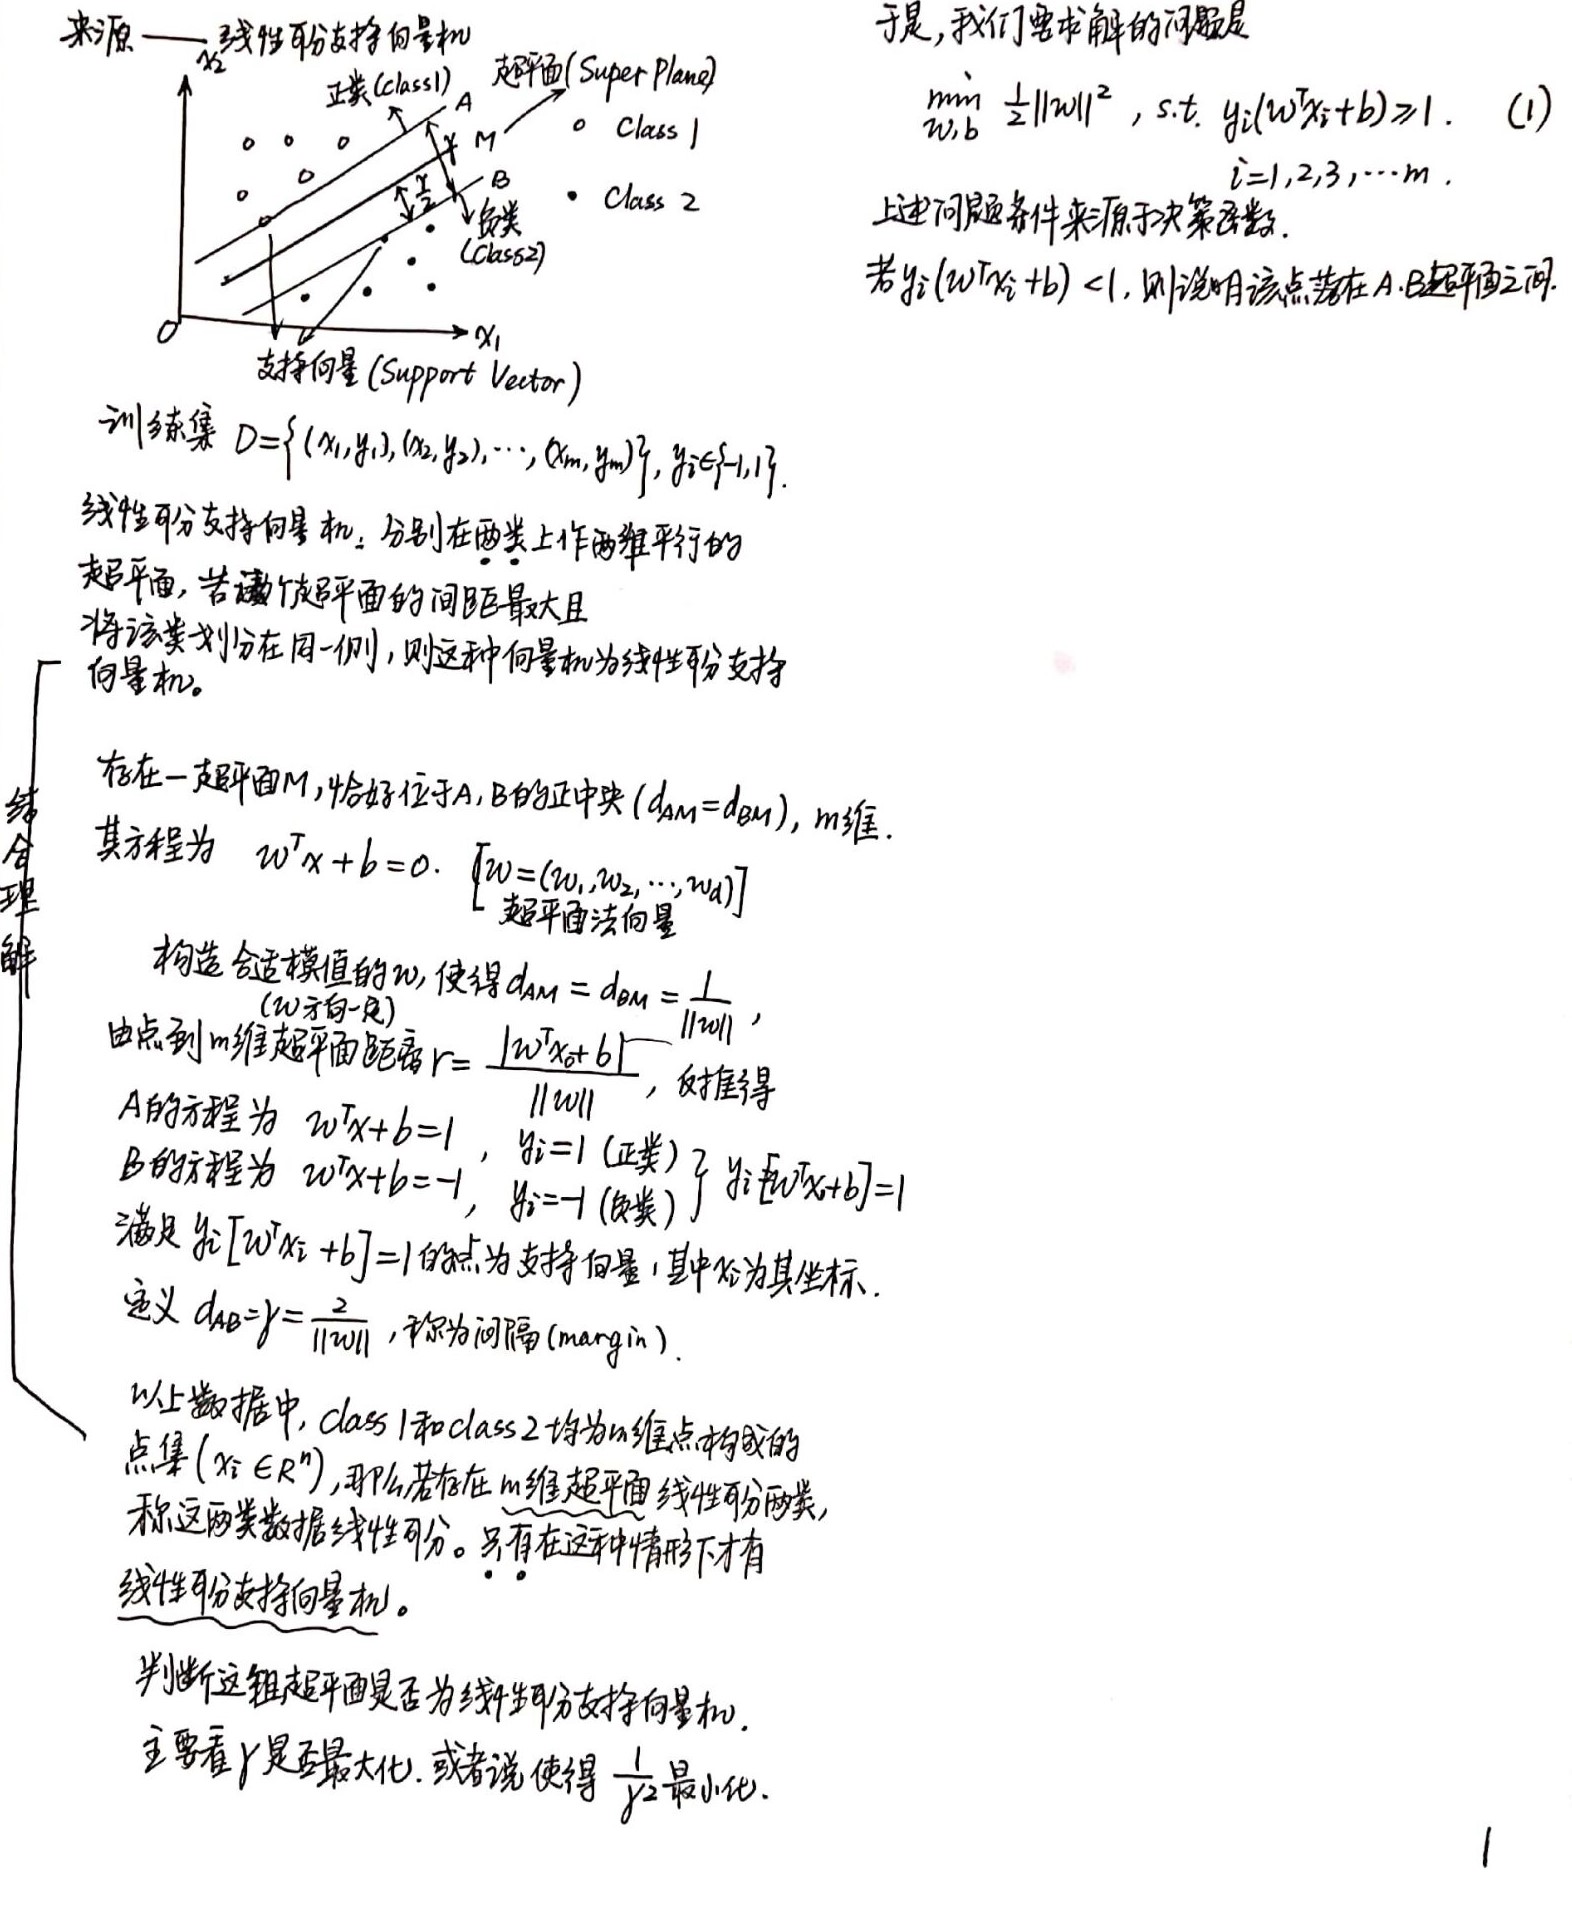 来源——线性可分支持向量机
x₂
正类(class1)
超平面(Super Plane)
A
M
γ
B
γ/2
负类
(Class2)
○ Class 1
• Class 2
O
x₁
支持向量(Support Vector)
训练集 D={(x₁,y₁),(x₂,y₂),…,(xₘ,yₘ)}, yᵢ∈{-1,1}.
线性可分支持向量机：分别在两类上作两维平行的
超平面,若这两个超平面的间距最大且
将该类划分在同一侧,则这种向量机为线性可分支持
向量机。
结合理解
存在一超平面M,恰好位于A,B的正中央(d_AM=d_BM), m维.
其方程为 wᵀx+b=0. [w=(w₁,w₂,…,w_d)]
超平面法向量
构造合适模值的w,使得d_AM = d_BM = 1/||w||,
(w方向一定)
由点到m维超平面距离r= |wᵀx₀+b|/||w|| ,反推得
A的方程为 wᵀx+b=1 , yᵢ=1 (正类)
B的方程为 wᵀx+b=-1, yᵢ=-1 (负类) } yᵢ[wᵀxᵢ+b]=1
满足 yᵢ[wᵀxᵢ+b]=1的点为支持向量,其中xᵢ为其坐标.
定义 d_AB=γ=2/||w|| ,称为间隔(margin).
以上数据中, class 1和class 2均为m维点构成的
点集(xᵢ∈Rⁿ),那么若存在m维超平面线性可分两类,
称这两类数据线性可分。只有在这种情形下才有
线性可分支持向量机。
判断这组超平面是否为线性可分支持向量机.
主要看γ是否最大化.或者说使得 1/γ² 最小化.
于是,我们要求解的问题是
min_{w,b} ½||w||² , s.t. yᵢ(wᵀxᵢ+b)≥1. (1)
i=1,2,3,…m.
上述问题条件来源于决策函数.
若yᵢ(wᵀxᵢ+b)<1,则说明该点落在A.B超平面之间.
1